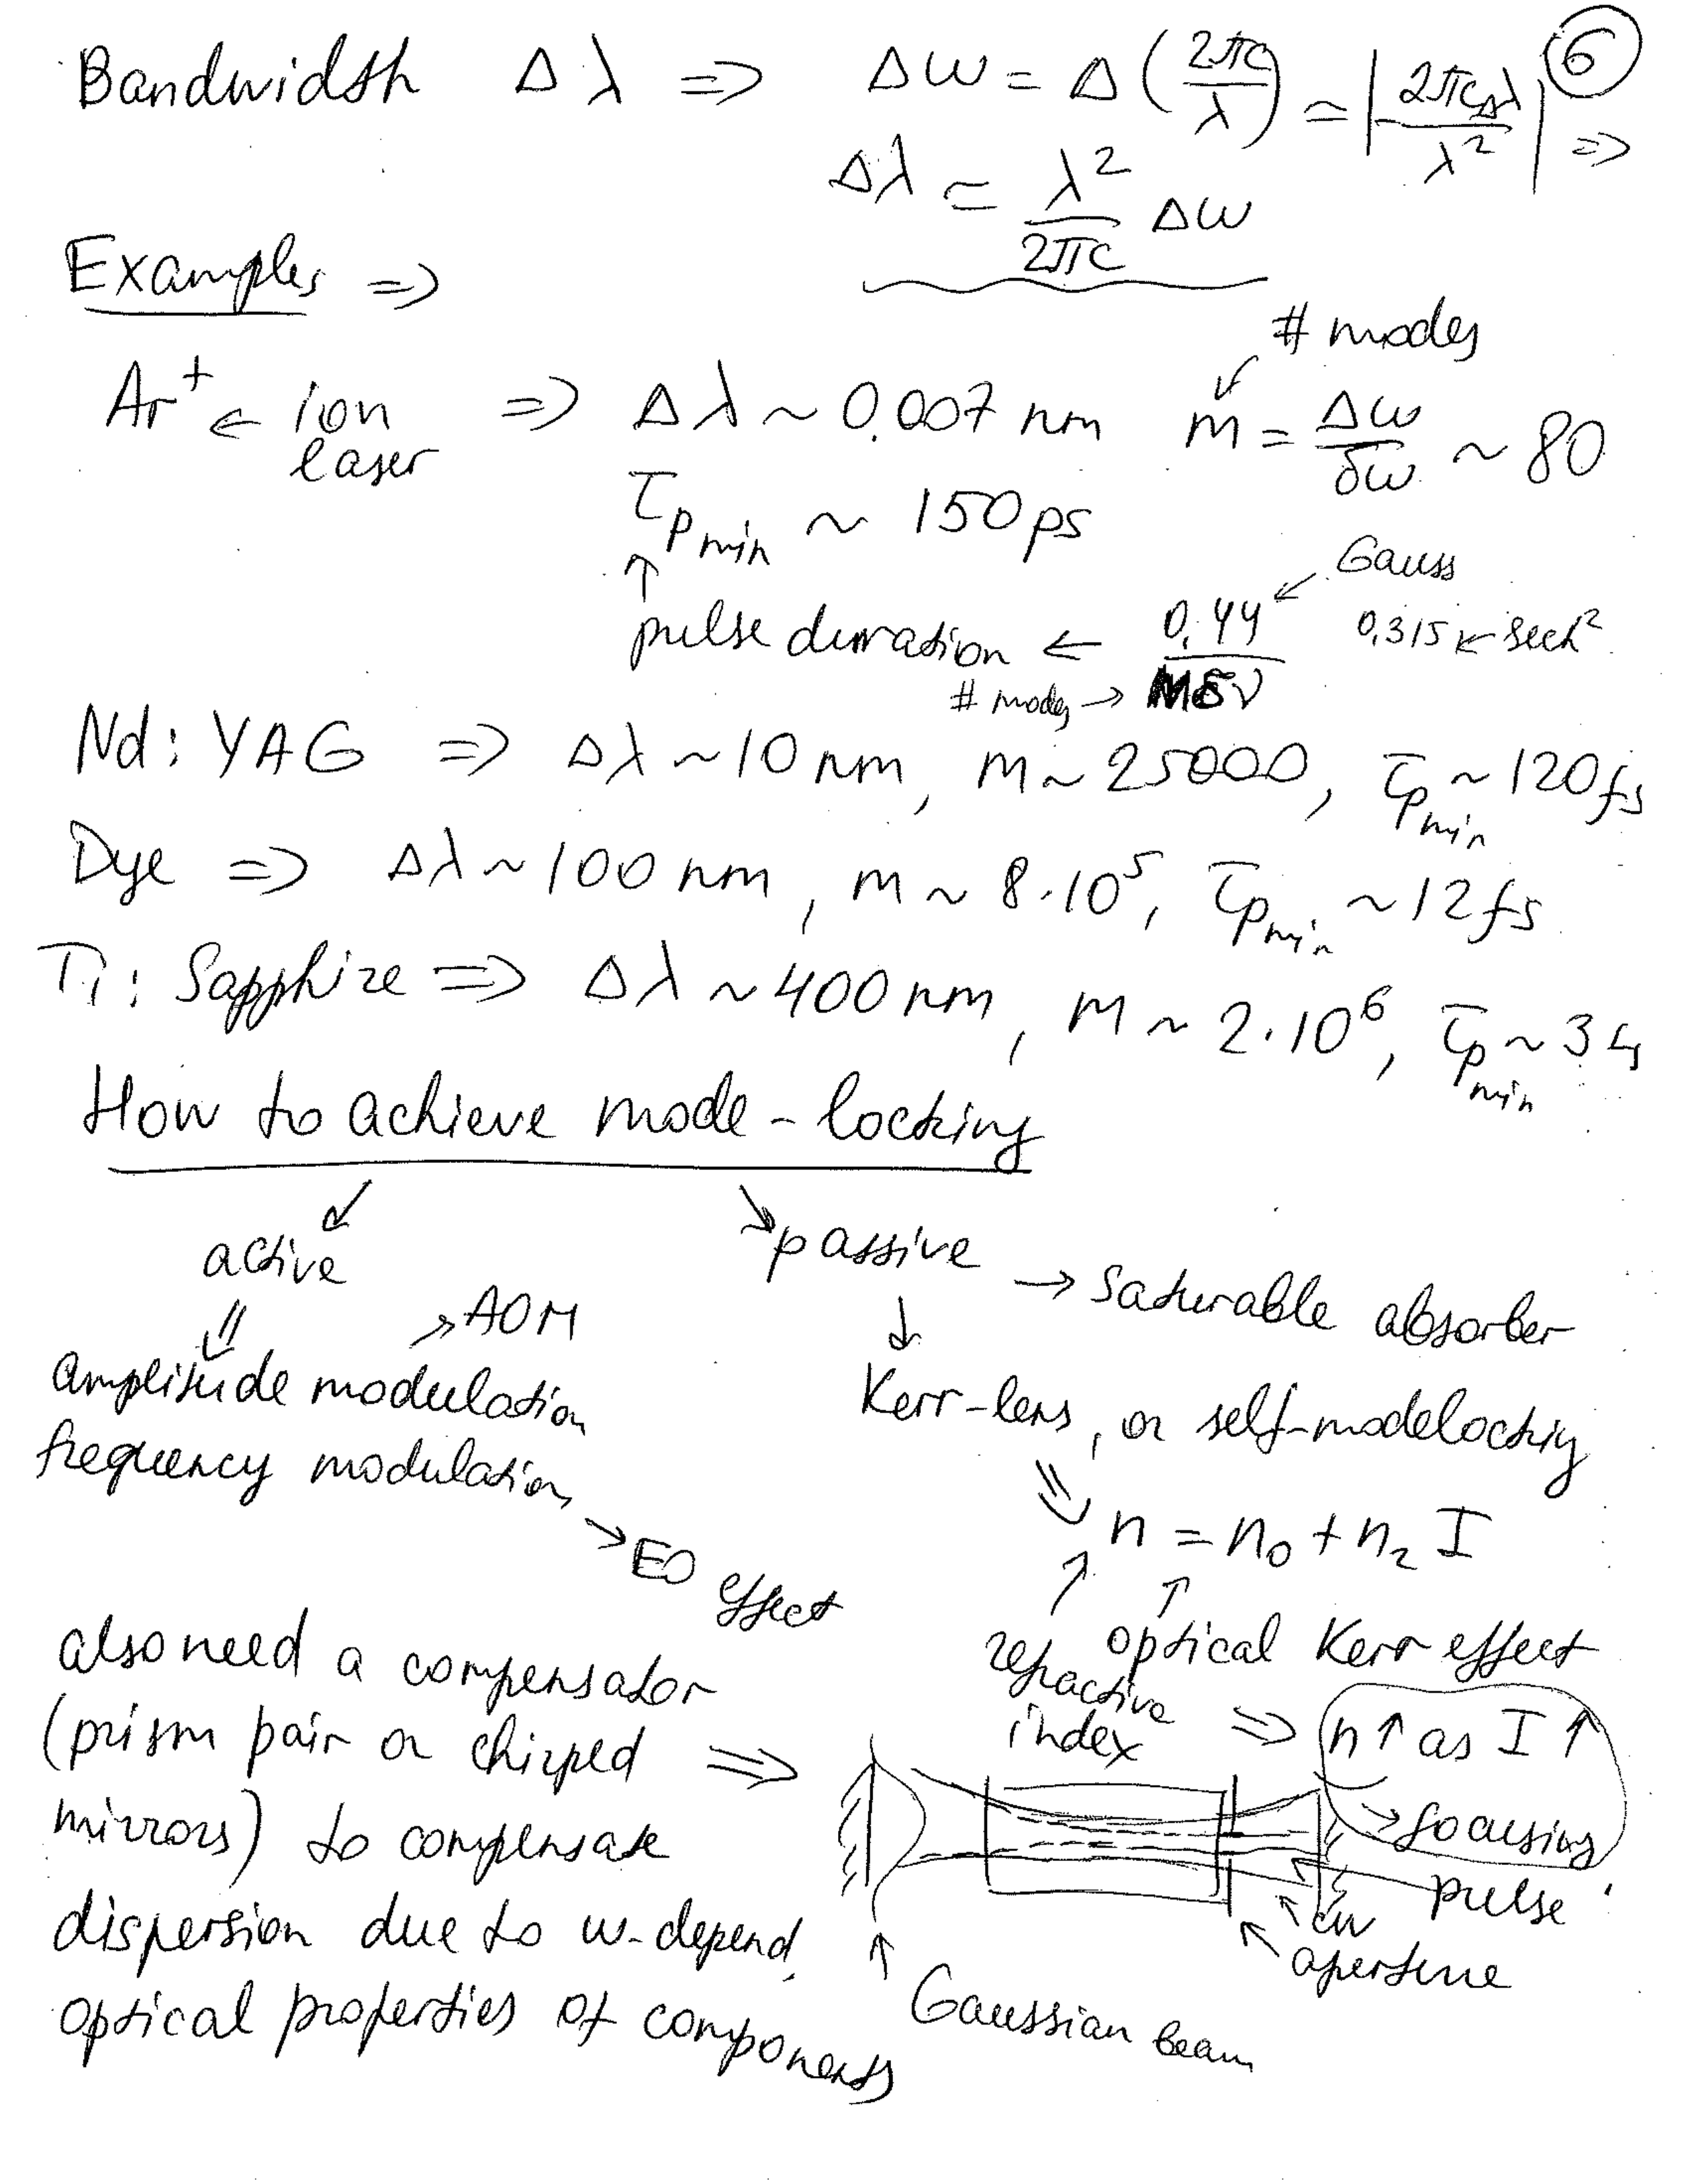 6
Bandwidth Δλ => Δω = Δ(2πc/λ) ≃ |2πcΔλ/λ²| =>
Δλ ≃ λ²/2πc Δω
Examples =>
# modes
Ar⁺ ← ion laser => Δλ ~ 0.007 nm m = Δω/δω ~ 80
τp min ~ 150 ps
↑ pulse duration ← 0,44/Mδν ← Gauss
0,315 ← sech²
# modes →
Nd: YAG => Δλ ~ 10 nm, m ~ 25000, τp min ~ 120 fs
Dye => Δλ ~ 100 nm, m ~ 8·10⁵, τp min ~ 12 fs
Ti: Sapphire => Δλ ~ 400 nm, m ~ 2·10⁶, τp min ~ 3 fs
How to achieve mode-locking
active
passive → saturable absorber
→ AOM
amplitude modulation
frequency modulation
→ EO effect
Kerr-lens, or self-modelocking
n = n₀ + n₂ I
refractive index
optical Kerr effect
=> n↑ as I↑
→ focusing
also need a compensator
(prism pair or chirped =>
mirrors) to compensate
dispersion due to ω-depend.
optical properties of components
pulse
cw
aperture
Gaussian beam